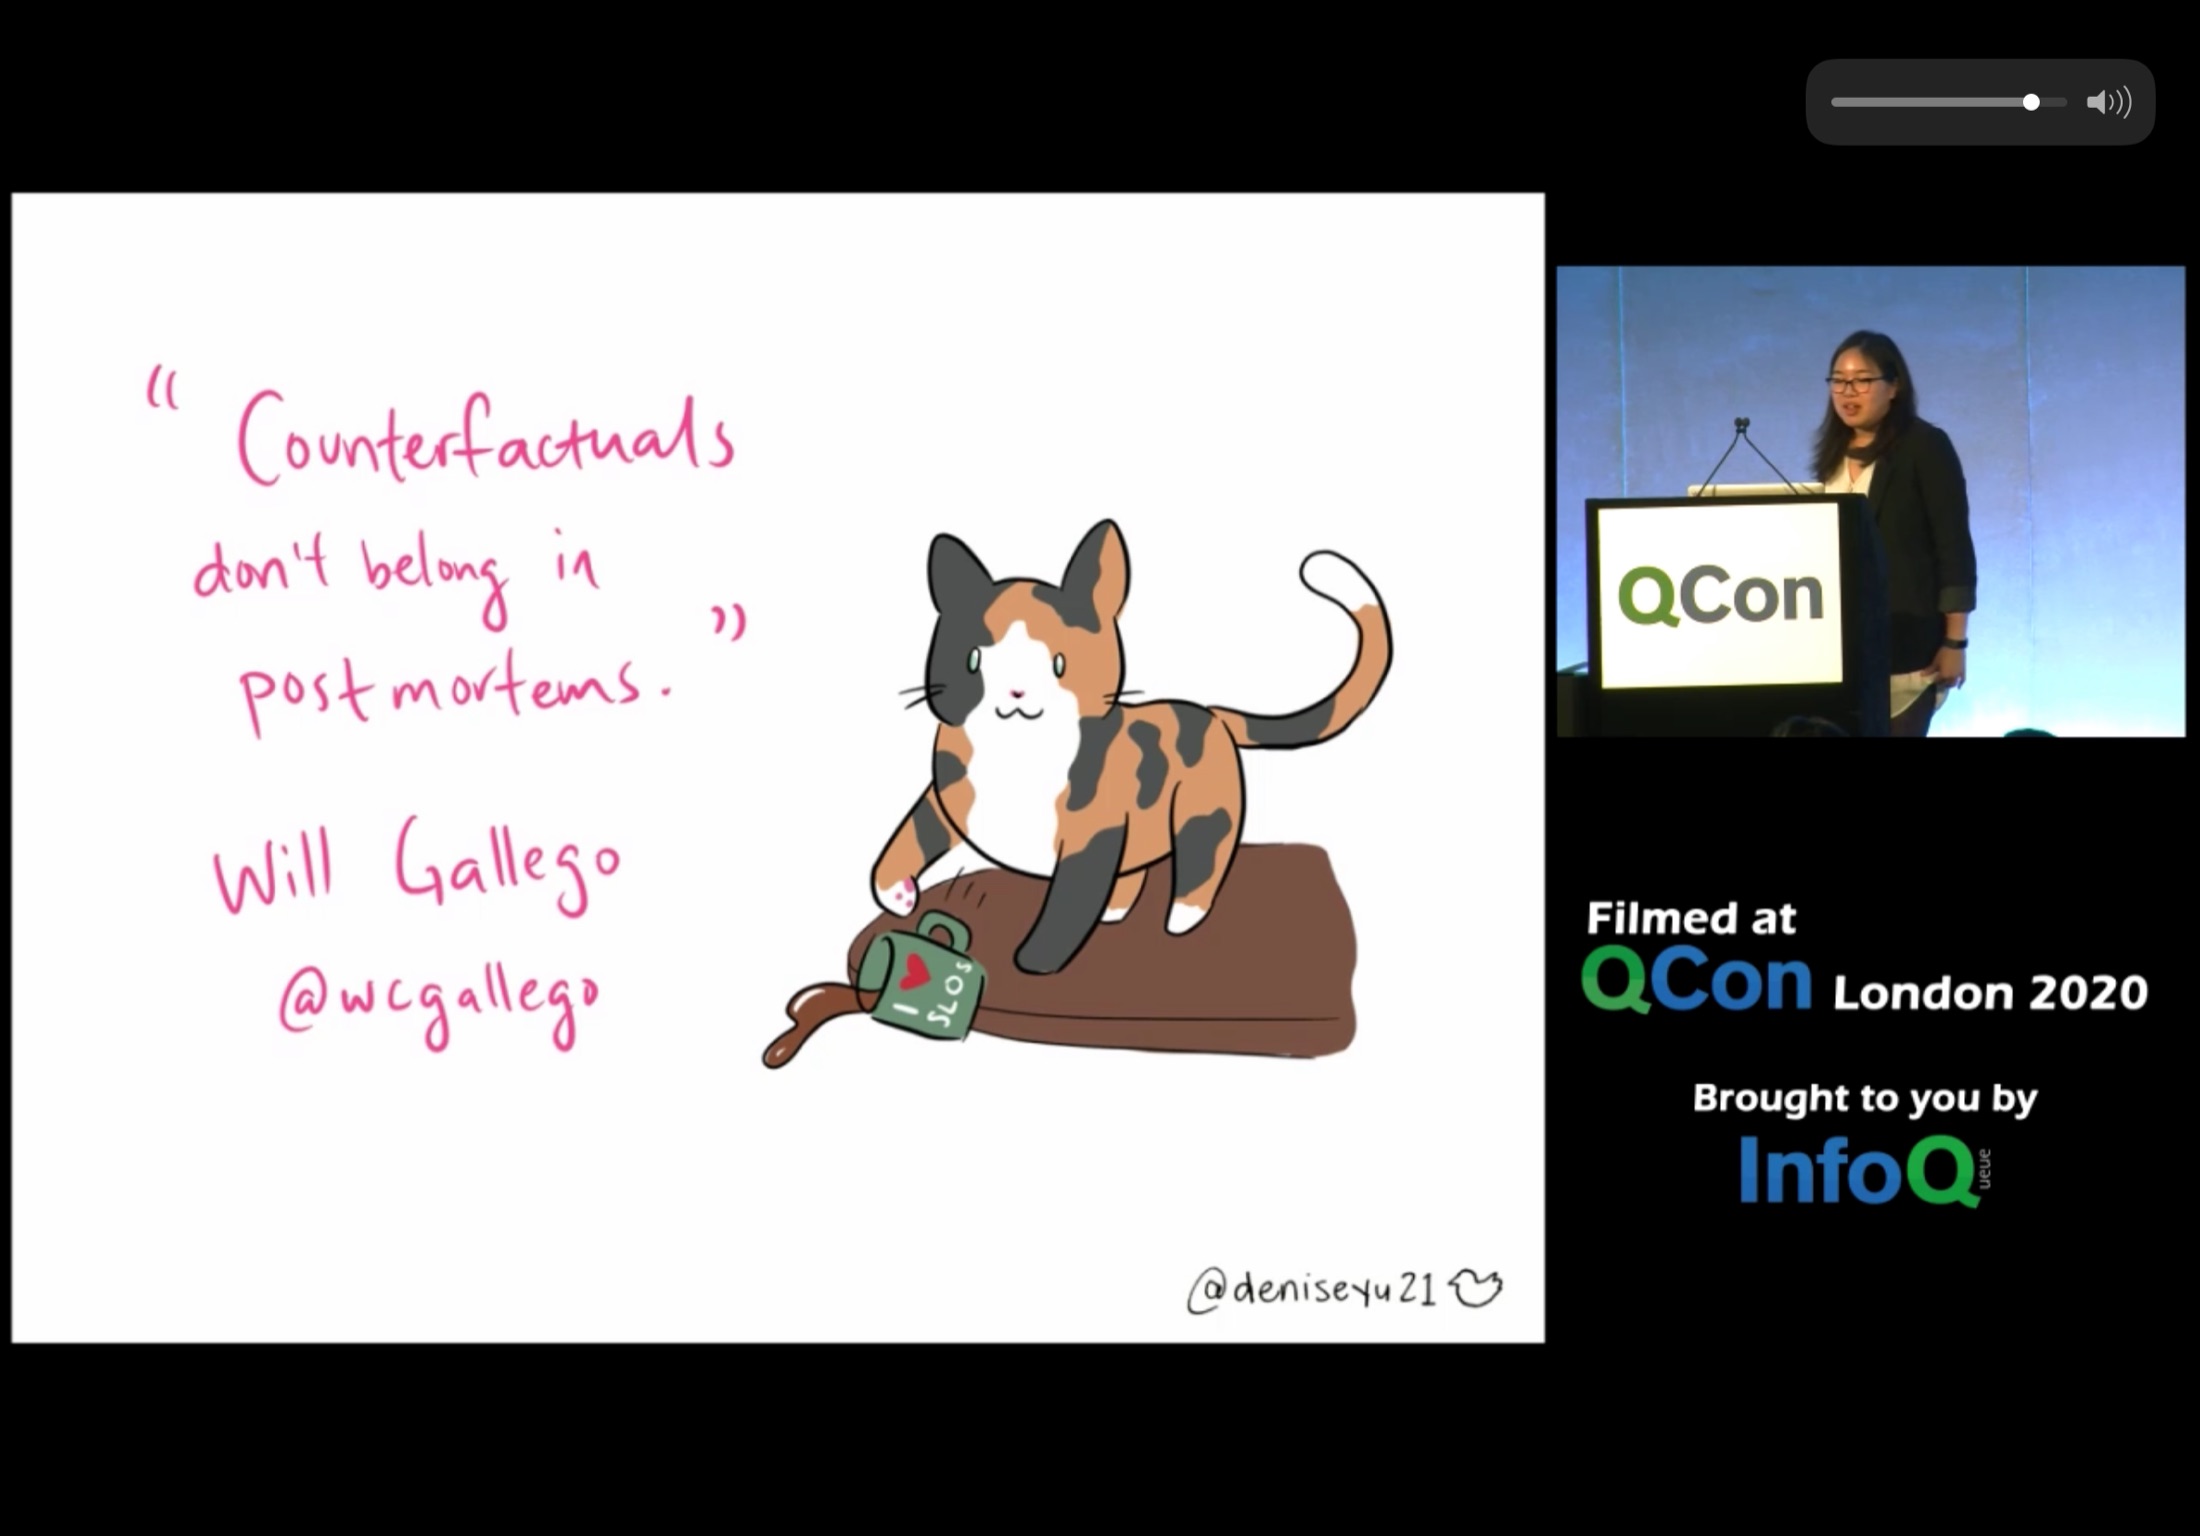 “ Counterfactuals
don't belong in
postmortems. ”
Will Gallego
@wcgallego
I ♥
SLOs
@deniseyu21
QCon
Filmed at
QCon London 2020
Brought to you by
InfoQueue